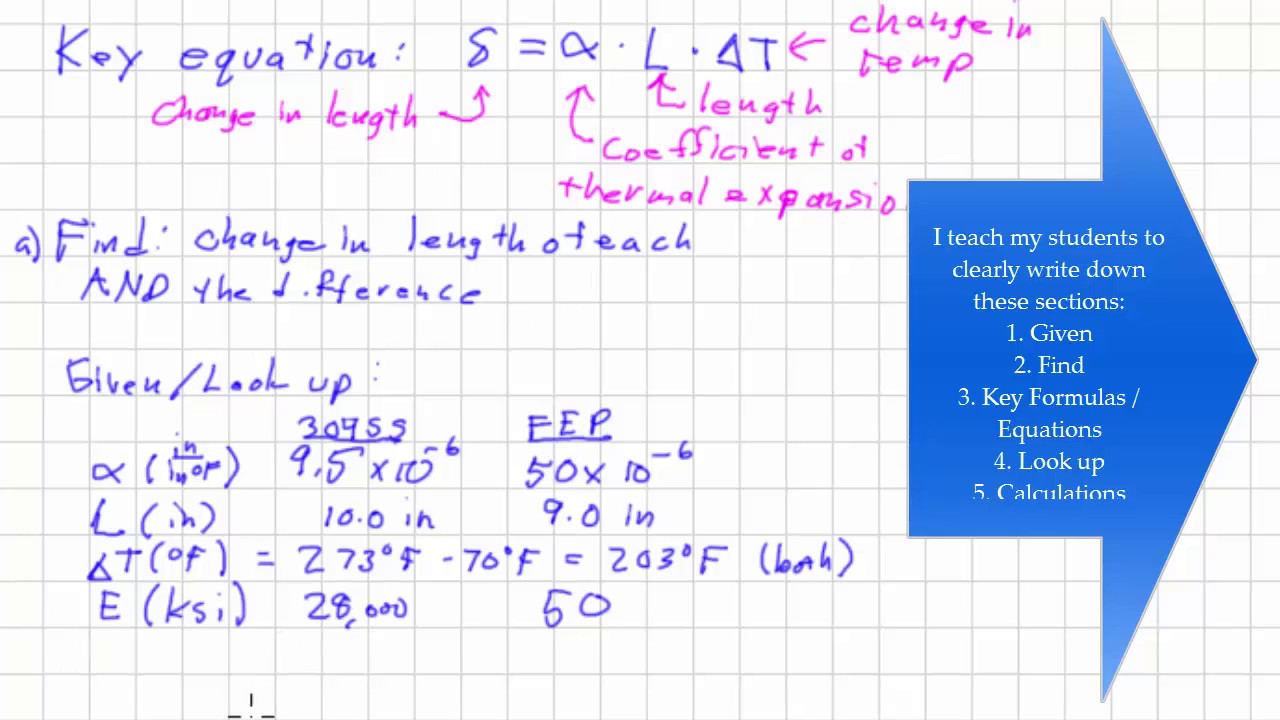 Key equation: δ = α · L · ΔT ← change in temp
change in length
length
coefficient of
thermal expansio
a) Find: change in length of each
AND the difference
Given/Look up:
304SS FEP
α (in/in°F) 9.5 x 10^-6 50 x 10^-6
L (in) 10.0 in 9.0 in
ΔT(°F) = 273°F - 70°F = 203°F (both)
E (ksi) 28,000 50
I teach my students to
clearly write down
these sections:
1. Given
2. Find
3. Key Formulas /
Equations
4. Look up
5. Calculations